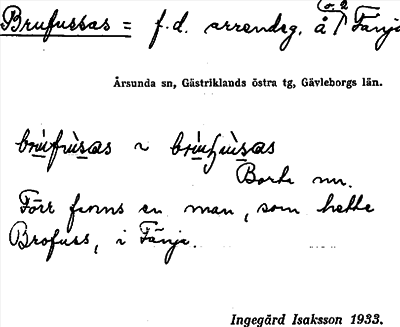 Brufussas = f.d. arrendeg. å Fänja
Årsunda sn, Gästriklands östra tg, Gävleborgs län.
Borta nu.
Förr fanns en man, som hette
Brofuss, i Fänja.
Ingegärd Isaksson 1933.